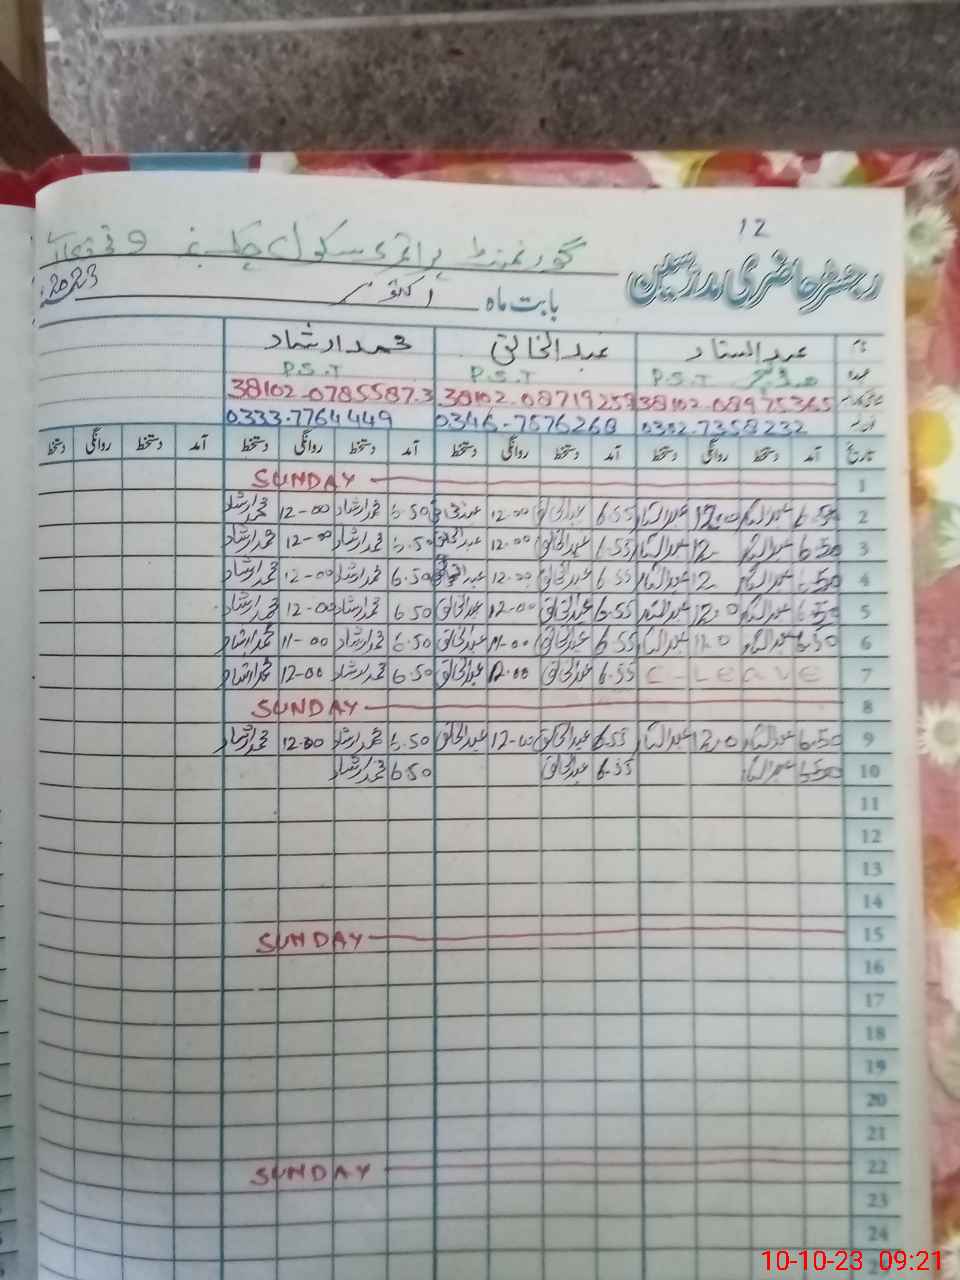 12
رجسٹر حاضری مدرسین
گورنمنٹ پرائمری سکول چک نمبر 9
بابت ماہ اکتوبر 2023
نام عبدالستار عبدالخالق محمد ارشاد
عہدہ P.S.T P.S.T P.S.T
38102-08975365 38102-0871925 38102-0785587-3
0302-7358232 0346-7576268 0333-7764449
تاریخ آمد دستخط روانگی دستخط آمد دستخط روانگی دستخط آمد دستخط روانگی دستخط آمد دستخط روانگی دستخط
1 SUNDAY
2 6.50 عبدالستار 12.0 عبدالستار 6.55 عبدالخالق 12.00 عبدالخالق 6.50 محمد ارشاد 12-00 محمد ارشاد
3 6.50 عبدالستار 12 عبدالستار 6.55 عبدالخالق 12.00 عبدالخالق 6.50 محمد ارشاد 12-00 محمد ارشاد
4 6.50 عبدالستار 12 عبدالستار 6.55 عبدالخالق 12.00 عبدالخالق 6.50 محمد ارشاد 12-00 محمد ارشاد
5 6.50 عبدالستار 12.0 عبدالستار 6.55 عبدالخالق 12-00 عبدالخالق 6.50 محمد ارشاد 12-00 محمد ارشاد
6 6.50 عبدالستار 11.0 عبدالستار 6.55 عبدالخالق 11-00 عبدالخالق 6.50 محمد ارشاد 11-00 محمد ارشاد
7 C-Leave 6.55 عبدالخالق 12.00 عبدالخالق 6.50 محمد ارشاد 12-00 محمد ارشاد
8 SUNDAY
9 6.50 عبدالستار 12.0 عبدالستار 6.55 عبدالخالق 12-00 عبدالخالق 6.50 محمد ارشاد 12.00 محمد ارشاد
10 6.50 عبدالستار 6.55 عبدالخالق 6.50 محمد ارشاد
11
12
13
14
15 SUNDAY
16
17
18
19
20
21
22 SUNDAY
23
24
10-10-23 09:21